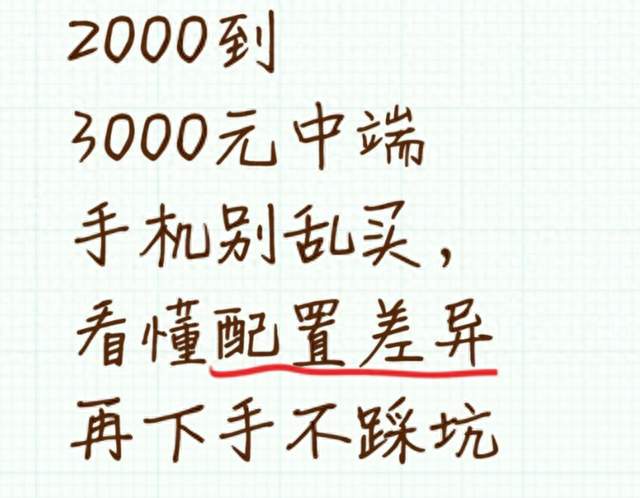 2000到
3000元中端
手机别乱买，
看懂配置差异
再下手不踩坑